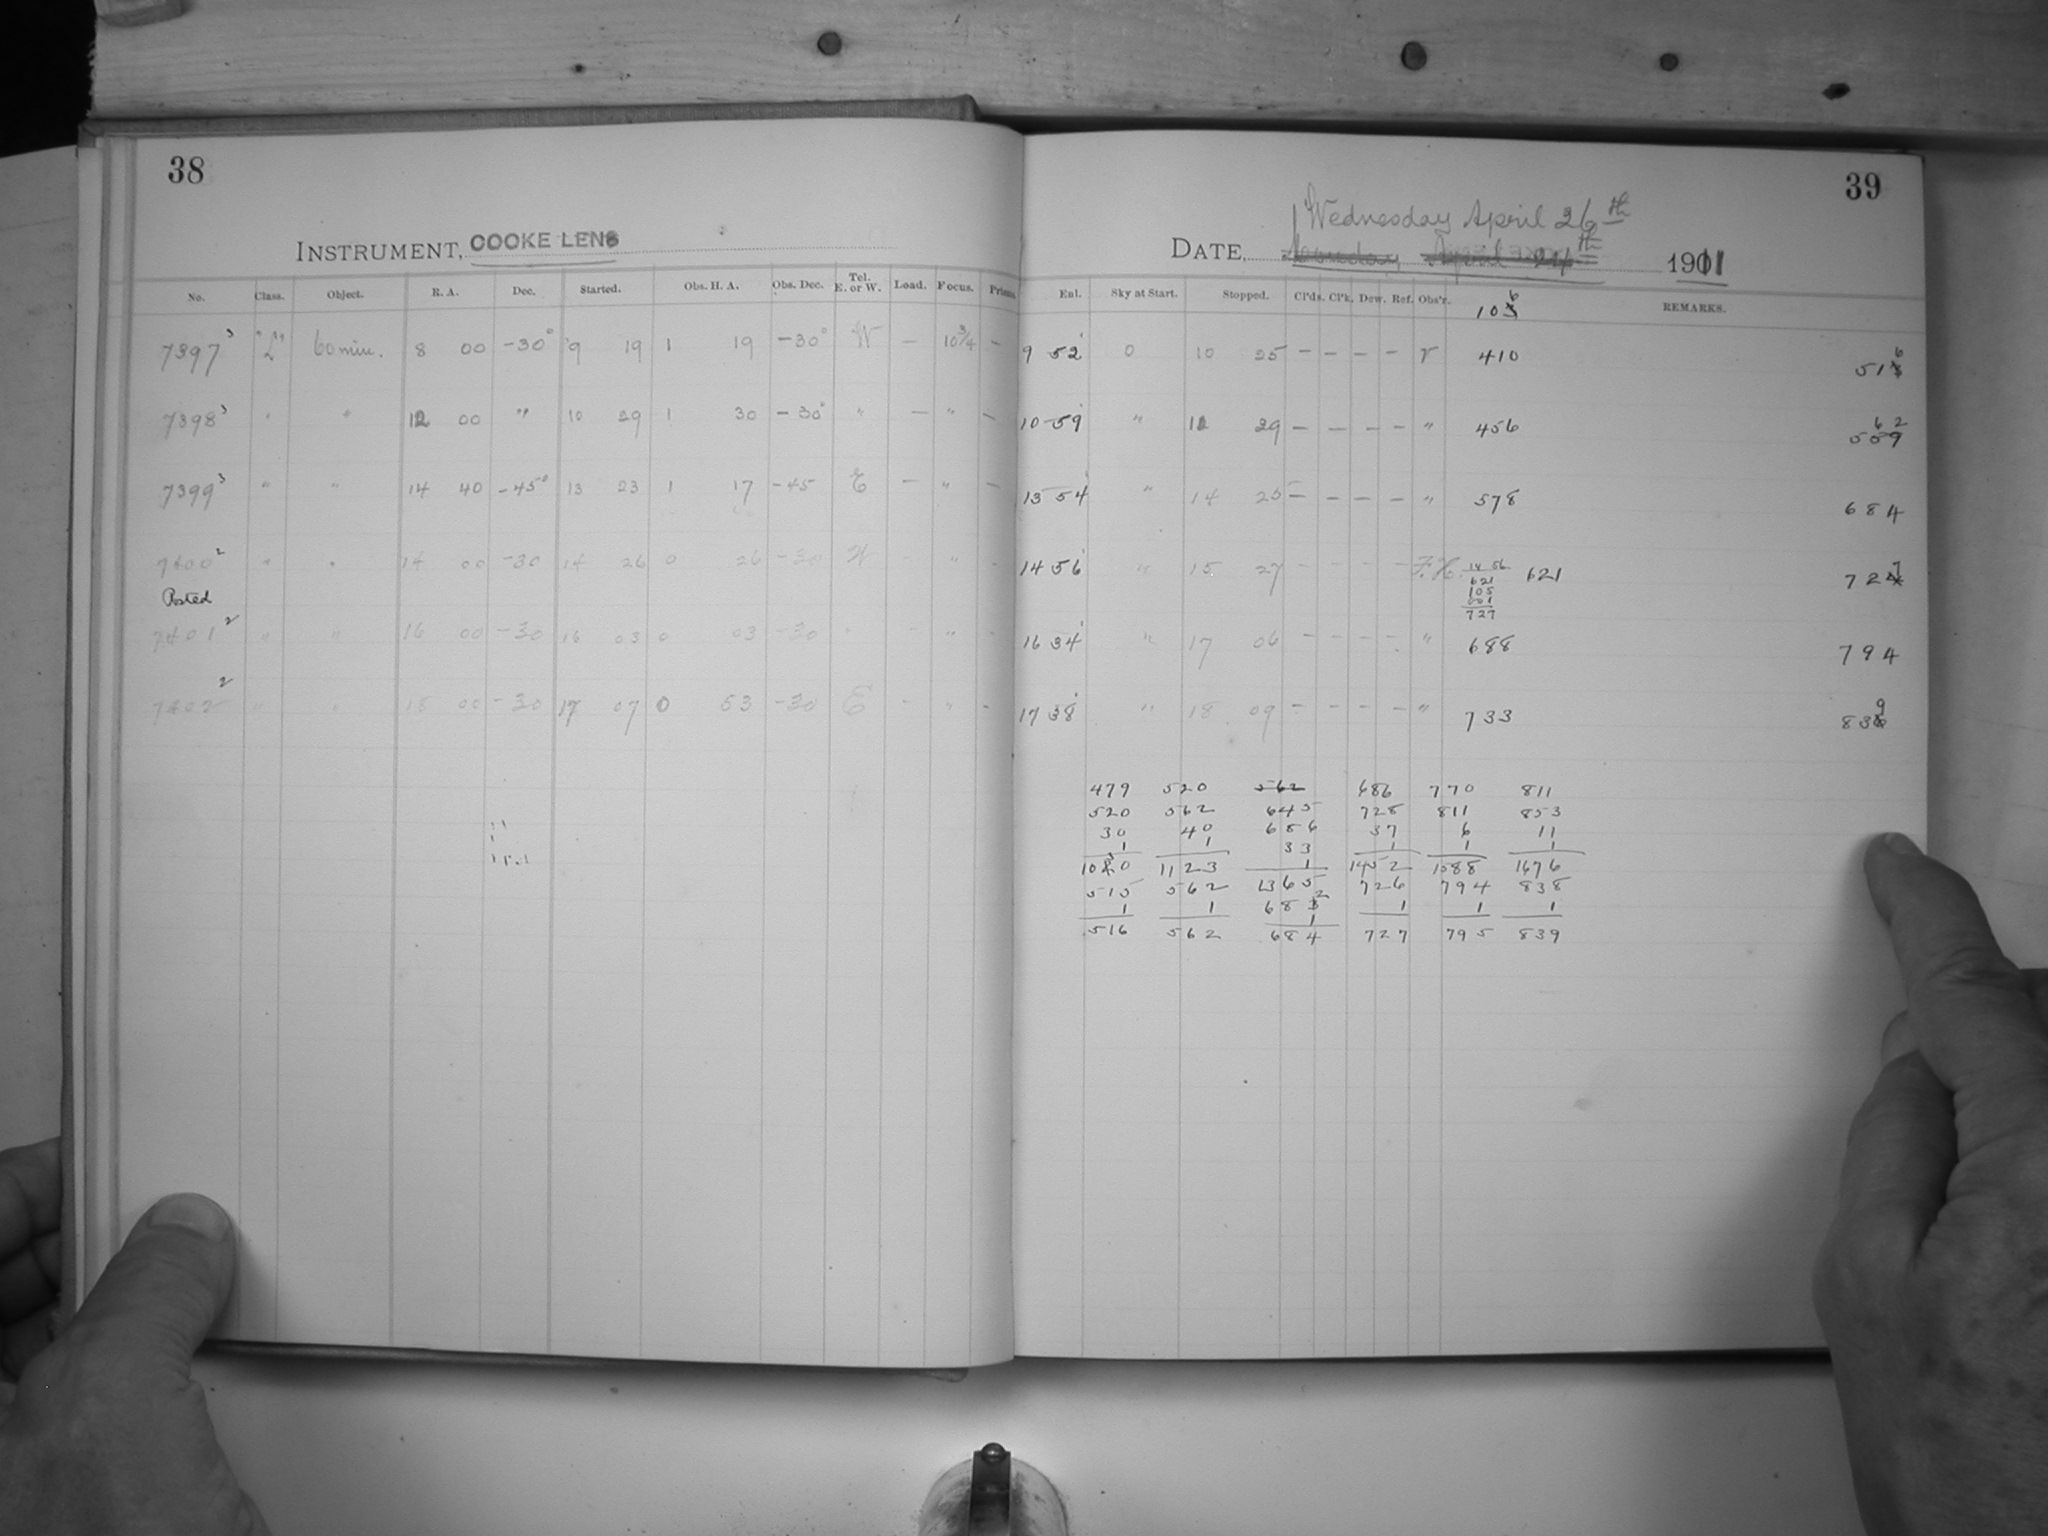 38
INSTRUMENT, COOKE LENS
No. Class. Object. R. A. Dec. Started. Obs. H. A. Obs. Dec. Tel. E. or W. Load. Focus. Prisms.
7397³ "L" 60 min. 8 00 -30° 9 19 1 19 -30° W — 10¾ —
7398³ " " 12 00 " 10 29 1 30 -30° " — " —
7399³ " " 14 40 -45° 13 23 1 17 -45 E — " —
7400² " " 14 00 -30 14 26 0 26 -30 W - " -
Posted
7401² " " 16 00 -30 16 03 0 03 -30 " - " -
7402² " " 18 00 -30 17 07 0 53 -30 E - " -
39
Wednesday April 26th
DATE, April 1911
Enl. Sky at Start. Stopped. Cl'ds. Cl'k. Dew. Ref. Obs'r. REMARKS.
106
9 52 0 10 25 — — — — r 410 516
10 59 " 12 29 — — — — " 456 562
13 54 " 14 25 — — — — " 578 684
14 56 " 15 27 — — — — F.H. 14 56 621 727
621
105
001
727
16 34 " 17 06 — — — — " 688 794
17 38 " 18 09 — — — — " 733 839
479 520 562 686 770 811
520 562 645 728 811 853
30 40 686 37 6 11
1 1 33 1 1 1
1030 1123 1 1452 1588 1676
515 562 1365 726 794 838
1 1 682 1 1 1
516 562 1 727 795 839
684